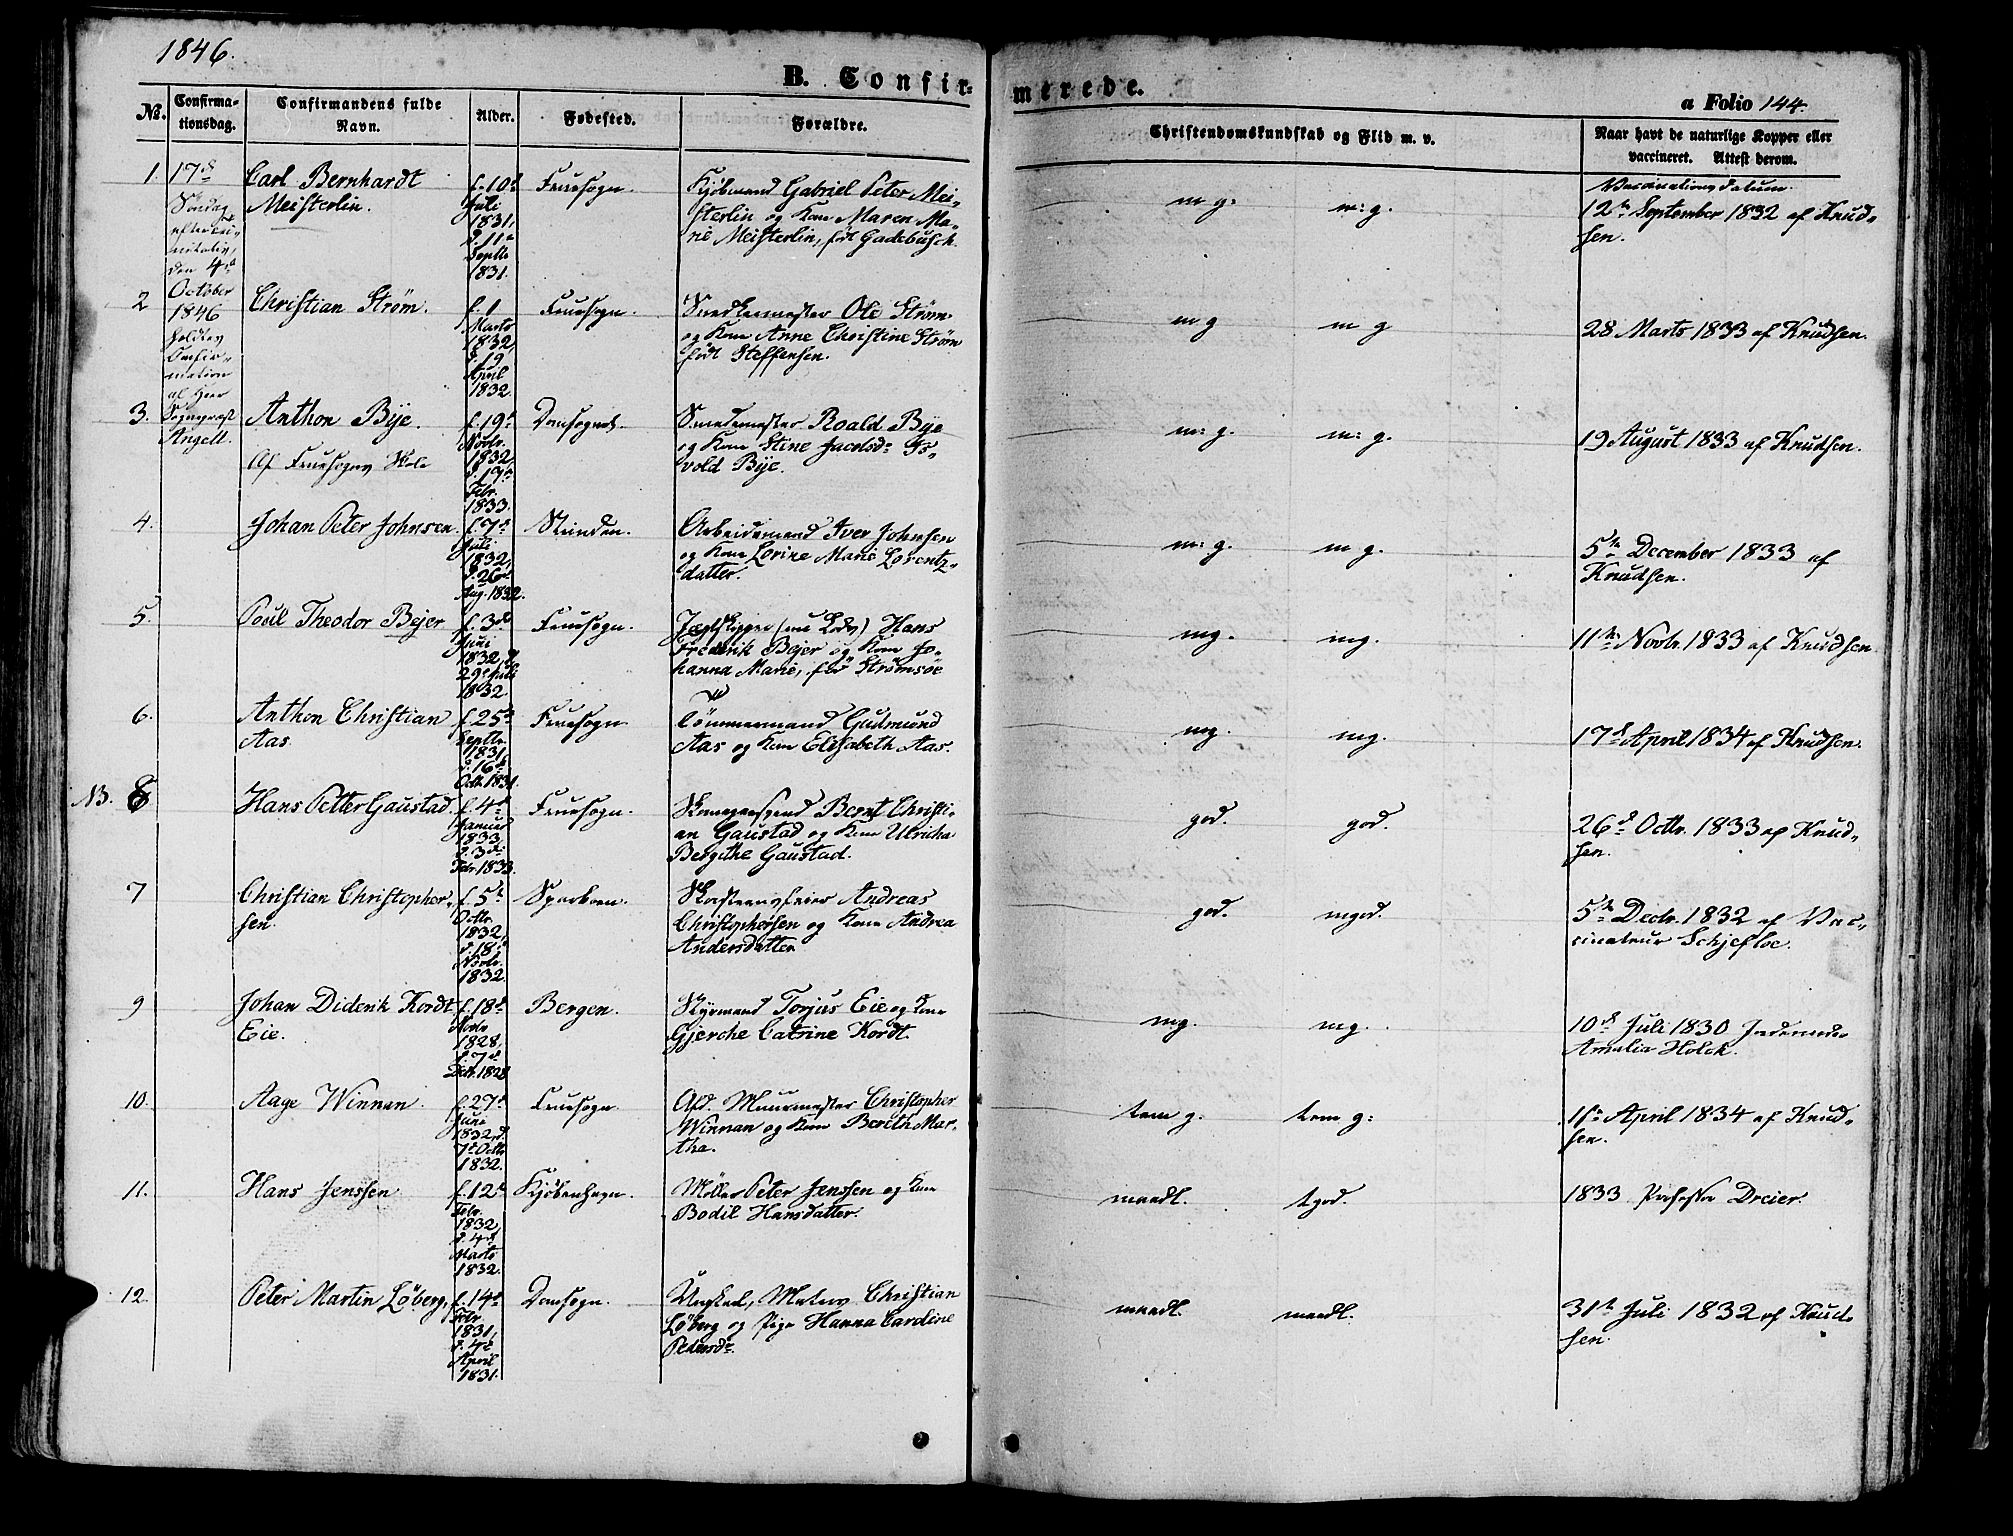 1846.
B. Confir-
merede.
a Folio 144.
No.
Confirma-
tionsdag.
Confirmandens fulde
Navn.
Alder.
Fødested.
Forældre.
Christendomskundskab og Flid m. v.
Naar havt de naturlige Kopper eller
vaccineret. Attest derom.
17d
Søndag
efter Tri-
nitatis,
den 4d
October
1846
holdtes
Confir-
mation
af Herr
Sognepræst
Angell.
1.
Carl Bernhardt
Meisterlin.
f. 10d
Juli
1831,
d. 11te
Septbr
1831.
Fruesogn.
Kjøbmand Gabriel Peter Mei-
sterlin og Kone Maren Ma-
rie Meisterlin, født Gadebusch.
m g.
m: g.
Vaccinations datum.
12te September 1832 af Knud-
sen.
2
Christian Strøm.
f. 1
Marts
1832,
d. 19
April
1832.
Fruesogn.
Snedkermester Ole Strøm
og Kone Anne Christine Strøm
født Steffensen.
m g
m g
28 Marts 1833 af Knudsen.
3.
Anthon Bye.
Af Fruesognes Skole
f. 19d
Novbr.
1832
d. 19de
Febr.
1833.
Domsognet.
Smedemester Roald Bye
og Kone Stine Jacobsdr Is-
vold Bye.
m: g.
m: g.
19 August 1833 af Knudsen.
4.
Johan Peter Johnsen.
f. 7d
Juli
1832,
d. 26d
Aug. 1832.
Strinden.
Arbeidsmand Iver Johnsen
og Kone Lorine Marie Lorentz-
datter.
m: g.
m g.
5te December 1833 af
Knudsen.
5.
Poul Theodor Bejer
f. 3de
Juni
1832, d.
29d Juli
1832
Fruesogn.
Jægtskipper (nu Lods) Hans
Frederik Bejer og Kone Jo-
hanna Marie, før Strømsøe
mg.
mg.
11te Novbr. 1833 af Knudsen.
6.
Anthon Christian
Aas.
f. 25de
Septbr.
1831
d. 16d
Octbr. 1831.
Fruesogn.
Tömmermand Gudmund
Aas og Kone Elisabeth Aas.
mg.
mg.
17d April 1834 af Knudsen.
NB. 8
Hans Petter Gaustad.
f. 4d
Januar
1833
d. 3di
Febr. 1833.
Fruesogn.
Bernt Christi-
an Gaustad og Kone Ulricka
Bergithe Gaustad.
god.
god.
26d Octbr. 1833 af Knud-
sen.
7
Christian Christopher-
sen.
f. 5te
Octbr.
1832,
d. 18d
Novbr.
1832
Sparboen.
Skorsteensfeier Andreas
Christophersen og Kone Andrea
Andersdatter
god.
mgod.
5te Decbr. 1832 af Vac-
cinateur Schjefloe.
9
Johan Diderik Kordt
Eie.
f. 18d
Novbr
1828,
d. 7d
Decbr. 1828
Bergen.
Styrmand Torjus Eie og Kone
Gjerche Catrine Kordt.
mg.
mg.
10d Juli 1830 Jordemoder
Amalia Holck.
10.
Aage Winnan.
f. 27d
Juni
1832, d.
7d Octbr
1832.
Fruesogn.
Afd. Muurmester Christopher
Winnan og Kone Bereth Mar-
tha.
tem g.
tem g:
11te April 1834 af Knud-
sen.
11.
Hans Jenssen
f. 12d
Febr.
1832,
d. 4d
Marts
1832.
Kjøbenhagn.
Møller Peter Jenssen og Kone
Bodil Hansdatter.
maadl.
tgod.
1833 Professor Dreier.
12.
Peter Martin Löberg,
f. 14d
Febr
1831,
d. 4d
April
1831.
Domsogn.
Ungkarl, Matros Christian
Löberg og Pige Hanna Cardine
Pedersdr.
maadl.
maadl.
31te Juli 1832 af Knud-
sen.